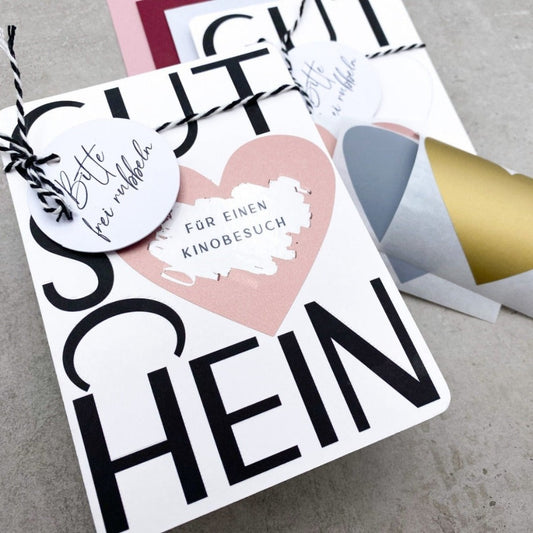 GUT
SCHEIN
Bitte
frei rubbeln
FÜR EINEN
KINOBESUCH
GUT
Bitte
frei rubbeln